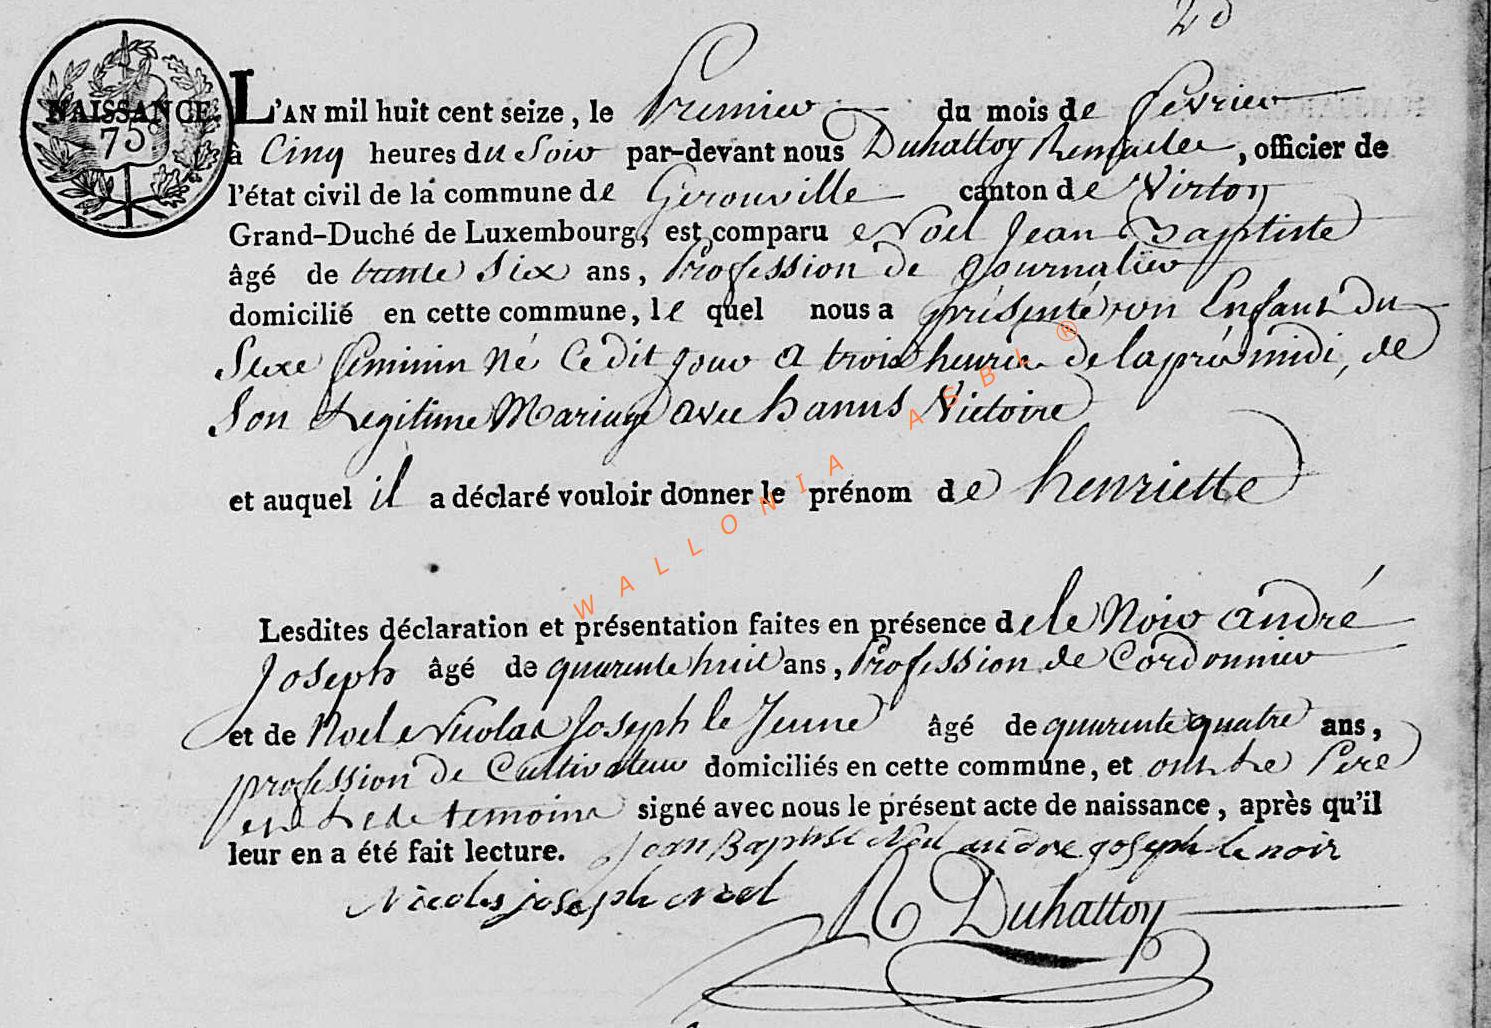 2d
NAISSANCE.
75c
L'AN mil huit cent seize, le Premier du mois de fevrier
à Cinq heures du Soir par-devant nous Duhattoy Remacle, officier de
l'état civil de la commune de Gerouville canton de Virton
Grand-Duché de Luxembourg, est comparu Noel Jean Baptiste
âgé de trente Six ans, Profession de journalier
domicilié en cette commune, le quel nous a présenté un Enfant du
Sexe feminin né Ce dit jour a trois heures de la près midi, de
Son Legitime Mariage avec hanus Victoire
et auquel il a déclaré vouloir donner le prénom de henriette
Lesdites déclaration et présentation faites en présence de le Noir andré
Joseph âgé de quarente huit ans, Profession de Cordonnier
et de Noel Nicolas Joseph le Jeune âgé de quarente quatre ans,
profession de Cultivateur domiciliés en cette commune, et ont Le Pere
et Le de temoins signé avec nous le présent acte de naissance, après qu'il
leur en a été fait lecture. Jean Baptiste Noel andre joseph le noir
Nicolas joseph Noel R Duhattoy
WALLONIA ASBL ®